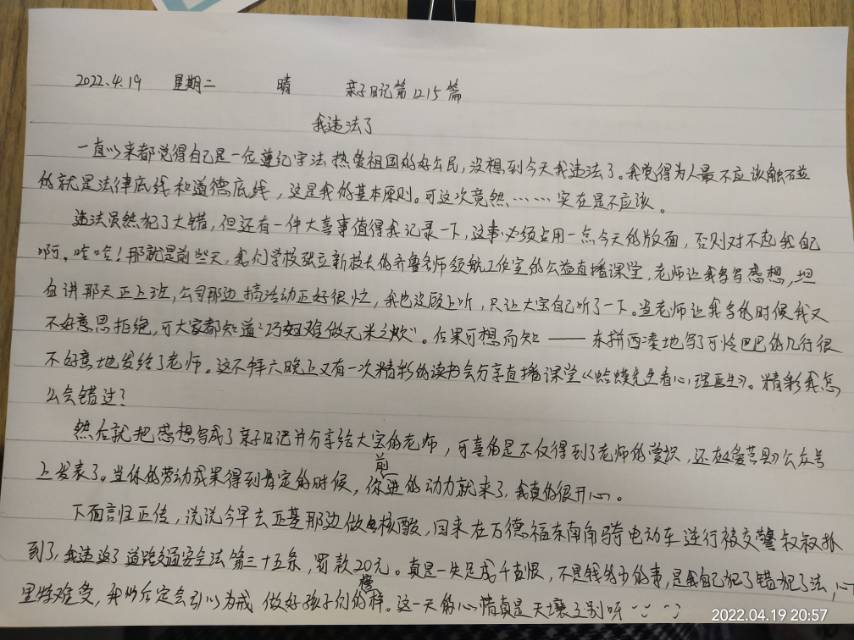 2022.4.19 星期二 晴 亲子日记第1215篇
我违法了
一直以来都觉得自己是一位遵纪守法热爱祖国的好公民,没想到今天我违法了。我觉得为人最不应该触碰
的就是法律底线和道德底线,这是我的基本原则。可这次竟然……实在是不应该。
违法虽然犯了大错,但还有一件大喜事值得我记录一下,这事必须占用一点今天的版面,否则对不起我自己
啊。哈哈!那就是前些天,我们学校张立新校长的齐鲁名师领航工作室的公益直播课堂,老师让我写写感想,坦
白讲那天正上班,公司那边搞活动正好很忙,我也没顾上听,只让大宝自己听了一下。当老师让我写的时候我又
不好意思拒绝,可大家都知道"巧妇难做无米之炊"。结果可想而知——东拼西凑地写了可怜巴巴的几行很
不好意地发给了老师。这不拜六晚上又有一次精彩的读书会分享直播课堂《蛤蟆先生看心理医生》。精彩我怎
么会错过?
然后就把感想写成了亲子日记并分享给大宝的老师,可喜的是不仅得到了老师的赏识,还在《爱莒县》公众号
上发表了。当你的劳动成果得到肯定的时候,你前进的动力就来了,我真的很开心。
下面言归正传,说说今早去正基那边做核酸,回来在万德福东南角骑电动车逆行被交警叔叔抓
到了,我违返了道路交通安全法第三十五条,罚款20元。真是一失足成千古恨,不是钱多少的责,是我自己犯了错犯了法,心
里特难受,我以后定会引以为戒 做好孩子们的榜样。这一天的心情真是天壤之别呀
2022.04.19 20:57